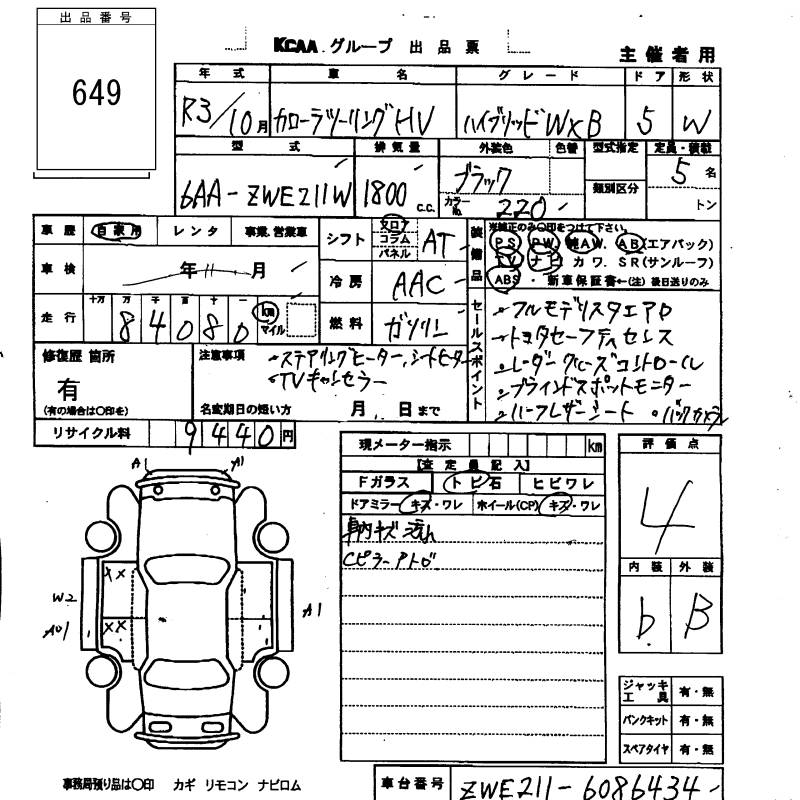 出品番号
649
KCAA グループ 出品票
主催者用
年式 車名 グレード ドア 形状
R3/10月 カローラツーリングHV ハイブリッドW×B 5 W
型式 排気量 外装色 色替 型式指定 定員・積載
6AA-ZWE211W 1800 c.c. ブラック 類別区分 5 名
カラーNo. 220 トン
車歴 自家用 レンタ 事業、営業車
車検 年 月
走行 十万 万 千 百 十 一 km マイル
8 4 0 8 0
シフト フロア コラム パネル AT
冷房 AAC
燃料 ガソリン
装備品
※純正のみ○印をつけて下さい。
PS PW 純AW. AB(エアバック)
TV ナビ カワ. SR(サンルーフ)
ABS ・ 新車保証書←(注)後日送りのみ
セールスポイント
フルモデリスタエアロ
トヨタセーフティセンス
レーダークルーズコントロール
ブラインドスポットモニター
ハーフレザーシート ・バックカメラ
修復歴 箇所
有
(有の場合は○印を)
注意事項
ステアリングヒーター,シートヒーター
TVキャンセラー
名変期日の短い方 月 日まで
リサイクル料 9440円
現メーター指示 km
[査定員記入]
Fガラス トビ石 ヒビワレ
ドアミラー キズ・ワレ ホイール(CP) キズ・ワレ
車内キズ 汚れ
Cピラーアトガ
評価点
4
内装 外装
b B
A1 A1
XX
W2
A01 XX
A1
ジャッキ工具 有・無
パンクキット 有・無
スペアタイヤ 有・無
事務局預り品は○印 カギ リモコン ナビロム
車台番号 ZWE211-6086434